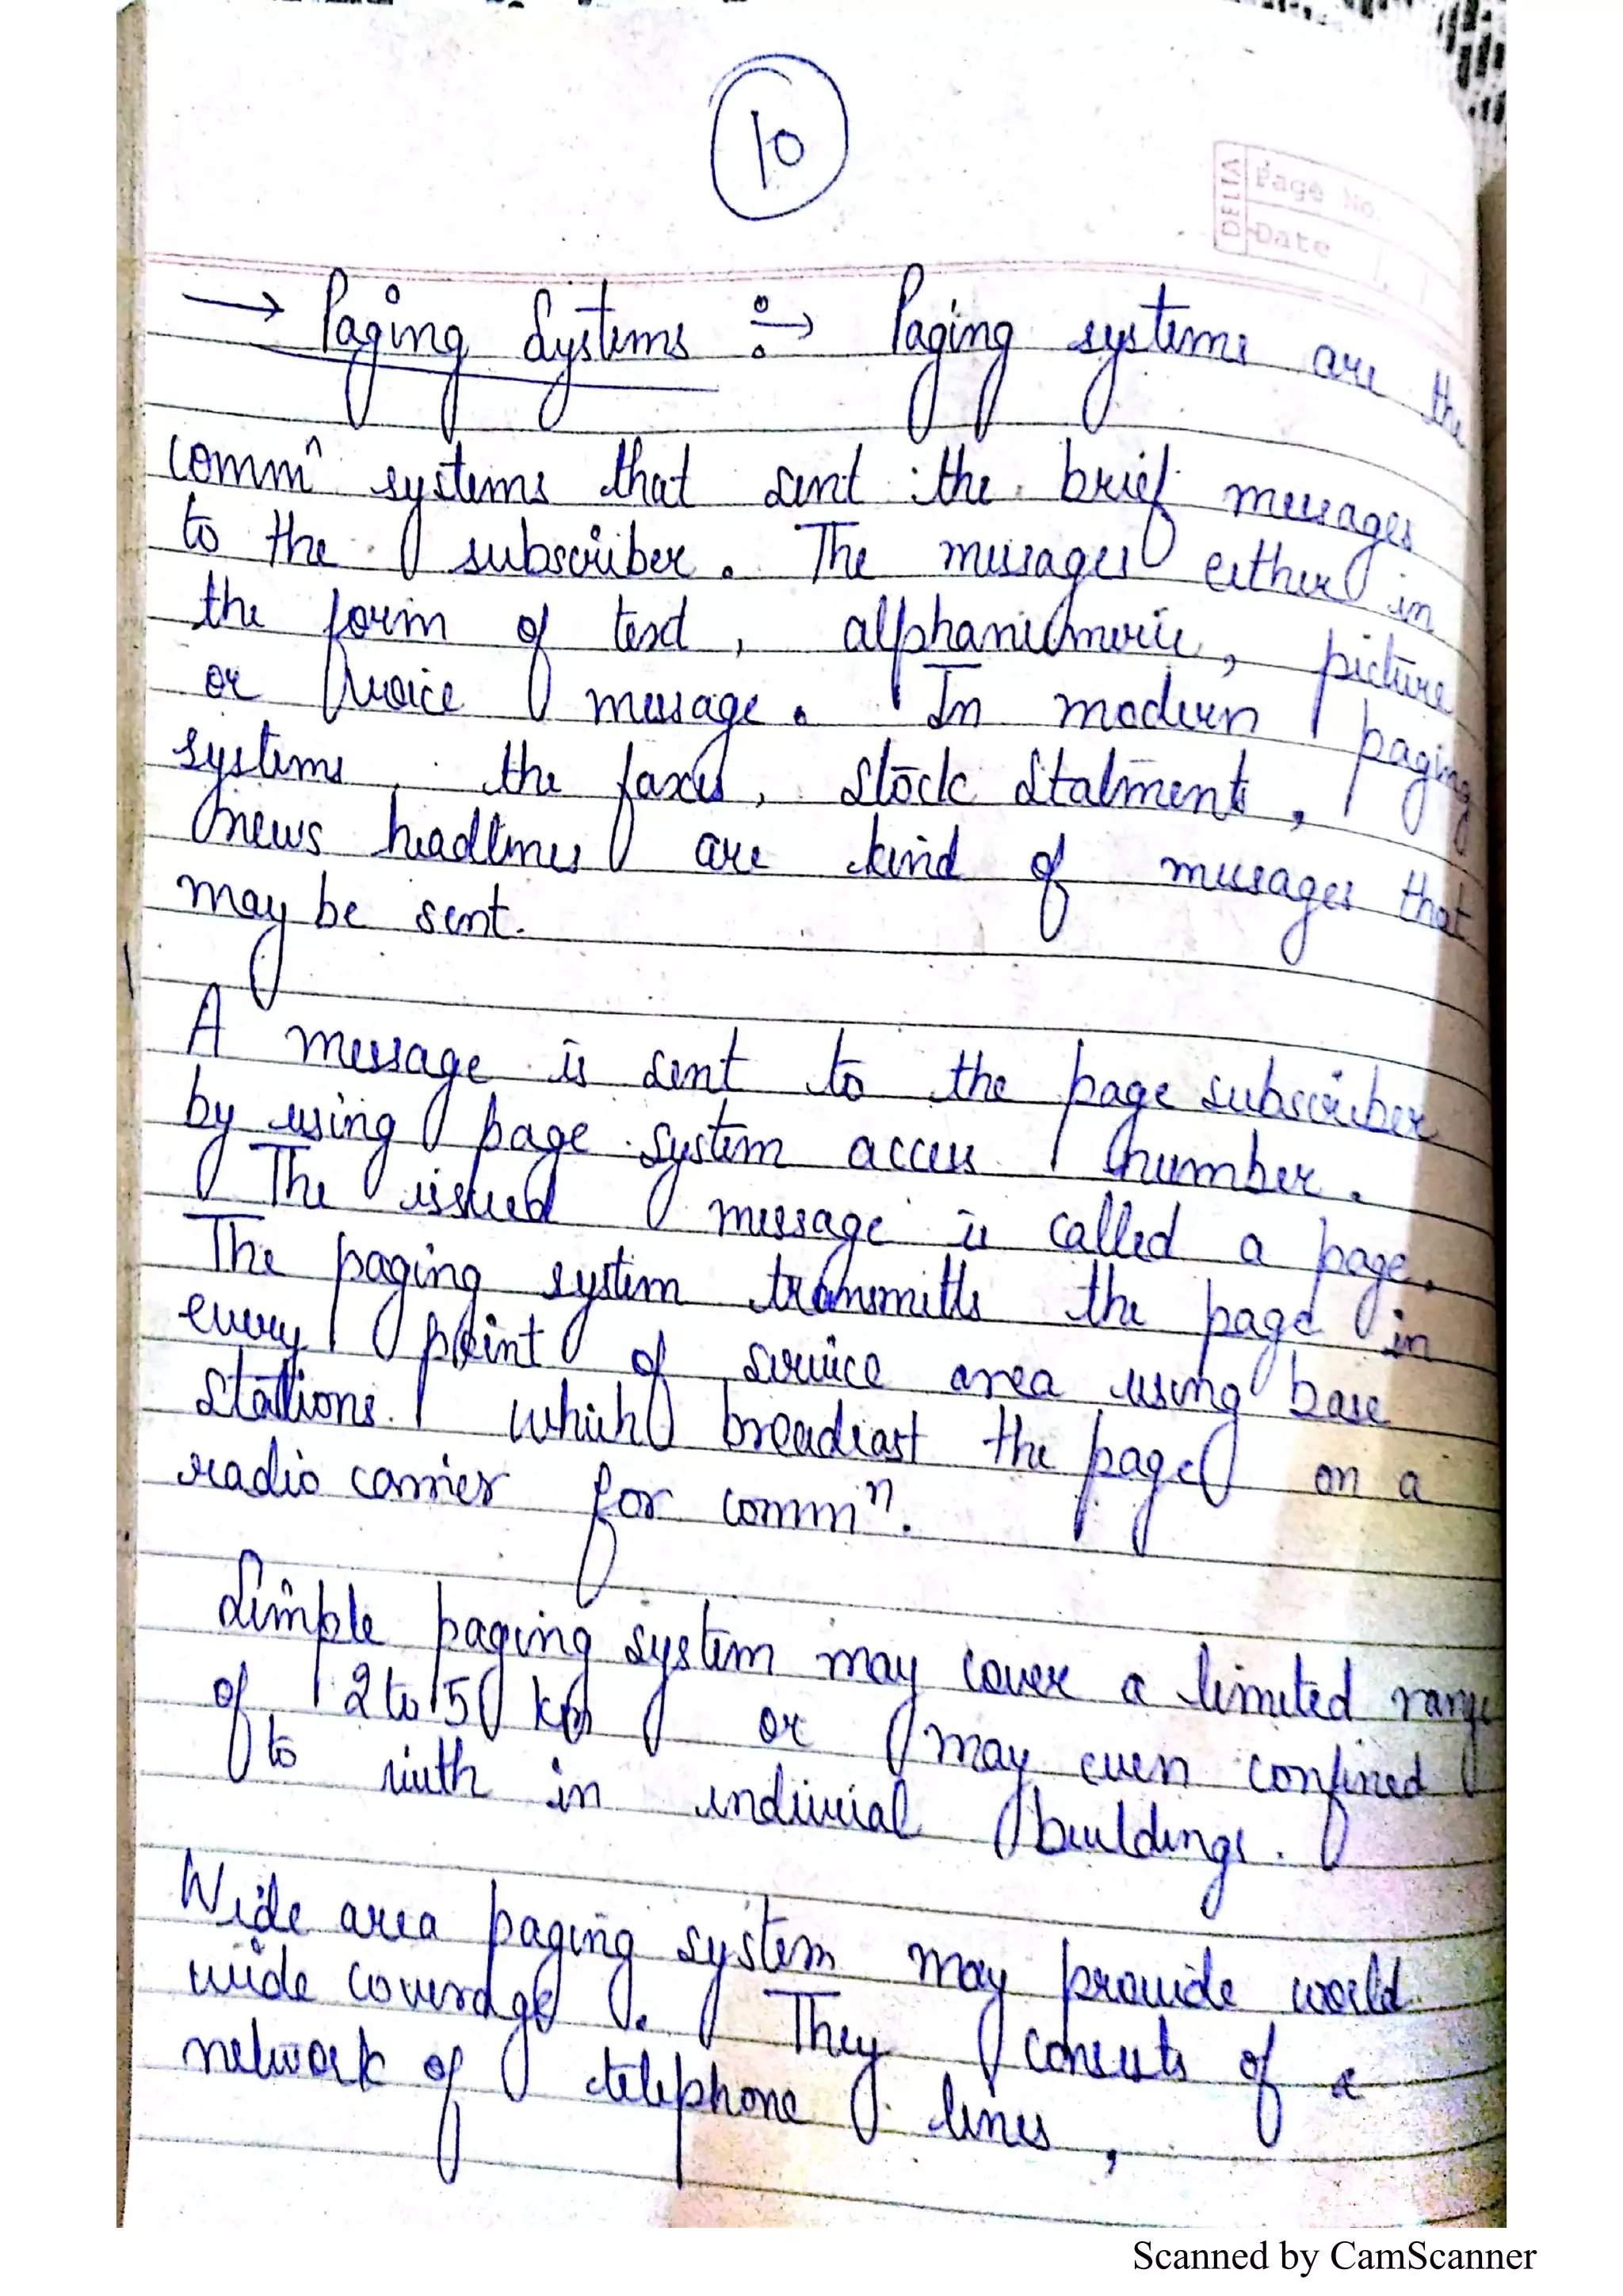 10
DELTA Page No.
Date
→ Paging Systems :→ Paging systems are the
commn systems that sent the brief messages
to the subscriber. The messages either in
the form of text, alphanumeric, picture
or voice message. In modern paging
systems, the faxes, Stock Statments,
news headlines are kind of messages that
may be sent.
A message is sent to the page subscriber
by using page system access number.
The issued message is called a page.
The paging system transmitts the page in
every point of service area using base
Stations. which broadcast the page on a
radio carrier for commn.
Simple paging system may cover a limited range
of 2 to 50 km or may even confined
to with in indivial buildings.
Wide area paging system may provide world
wide coverage. They consists of a
network of telephone lines,
Scanned by CamScanner